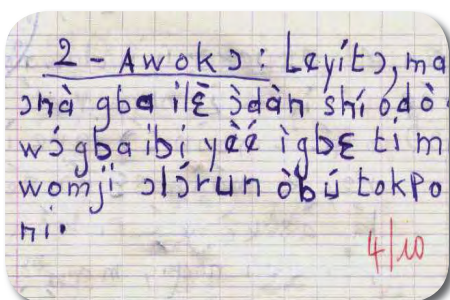 2 - Awokɔ : Leyítɔ, ma
ɔnà gba ilɛ̀ ɔ̀dàn shí odò
wɔ́gbaibi yèé ìgbɛ tí m
womji ɔlɔ́run òbú tokpo
ni.
4/10